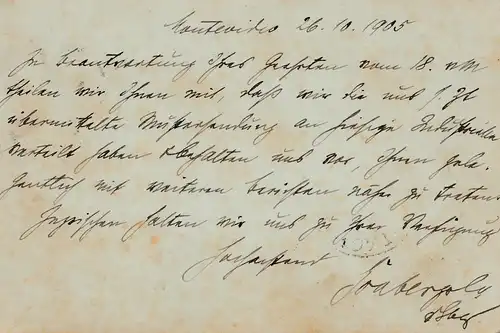 Montevideo 26. 10. 1905
In Beantwortung Ihres Geehrten vom 18. v/M
theilen wir Ihnen mit, daß wir die uns s. Zt
übermittelte Mustersendung an hiesige Industrielle
verteilt haben & behalten uns vor, Ihnen gele-
gentlich mit weiteren berichten näher zu treten.
Inzwischen halten wir uns zu Ihrer Verfügung
Hochachtend